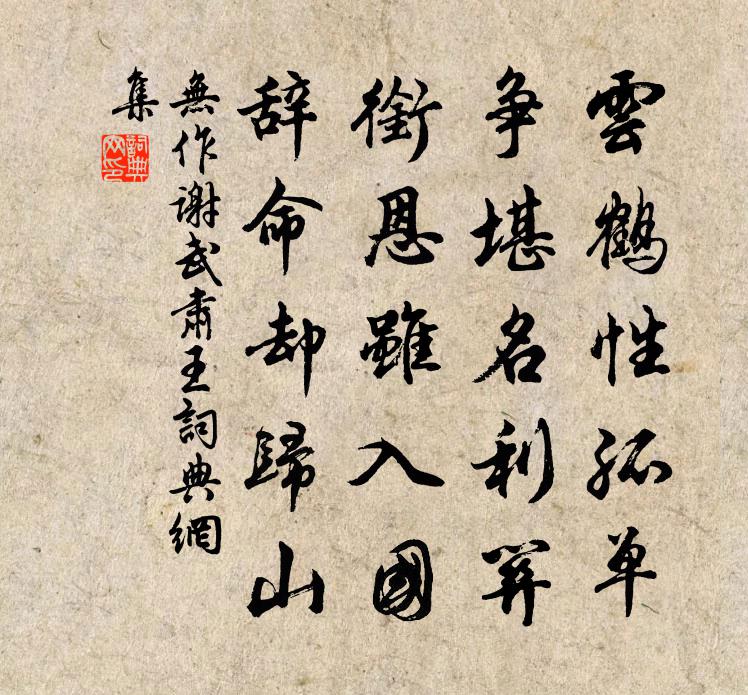 雲鶴性孤单
争堪名利關
銜恩雖入國
辞命却歸山
無作謝武肅王詞典網
集
詞典
网印